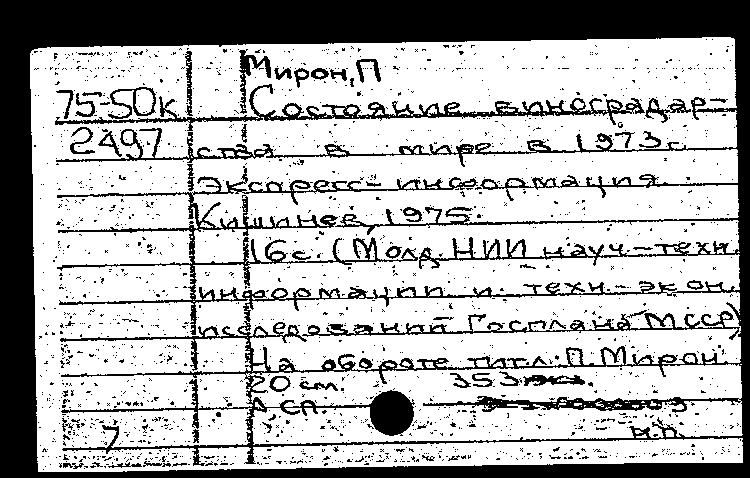 Мирон, П
75-50к Состояние виноградар-
2497 ства в мире в 1973г.
Экспресс-информация.
Кишинев, 1975.
16с. (Молд. НИИ науч.-техн.
информации и техн.-экон.
исследований Госплана МССР)
На обороте тит.л.: П. Мирон.
20 см. 353
7